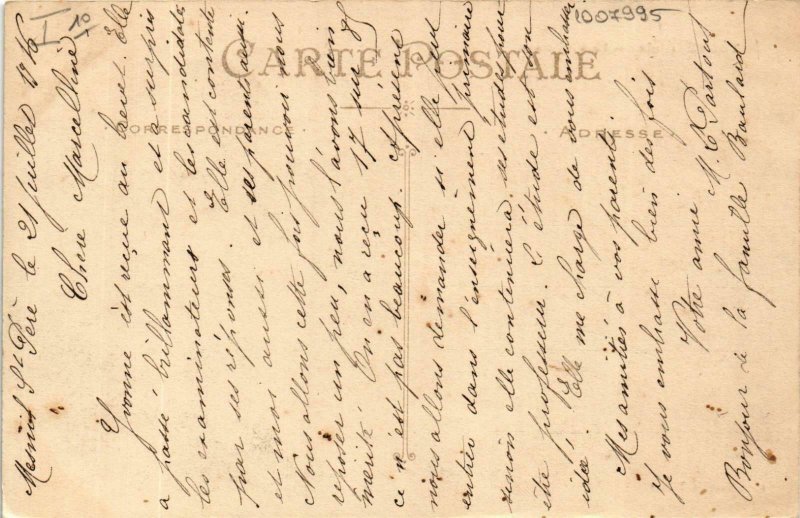 1007995
I 10
CARTE POSTALE
CORRESPONDANCE
ADRESSE
Mesnil St Père le 21 juillet 1916
Chère Marcelline
Yvonne est reçue au brevet. Elle
a passé brillamment et a surpris
les examinateurs et les candidates
par ses réponses. Elle est contente
et moi aussi et ses parents aussi.
Nous allons cette fois pouvoir nous
reposer un peu, nous l'avons bien
mérité. On en a reçu 17 sur 8
ce n'est pas beaucoup.
nous allons demander si elle peut
entrer dans l'enseignement primaire
sinon elle continuera ses études pour
être professeur. L'étude est son
idée. Elle me charge de vous embrasser
Mes amitiés à vos parents.
Je vous embrasse bien des fois.
Votre amie M. Partout
Bonjour à la famille Baulard